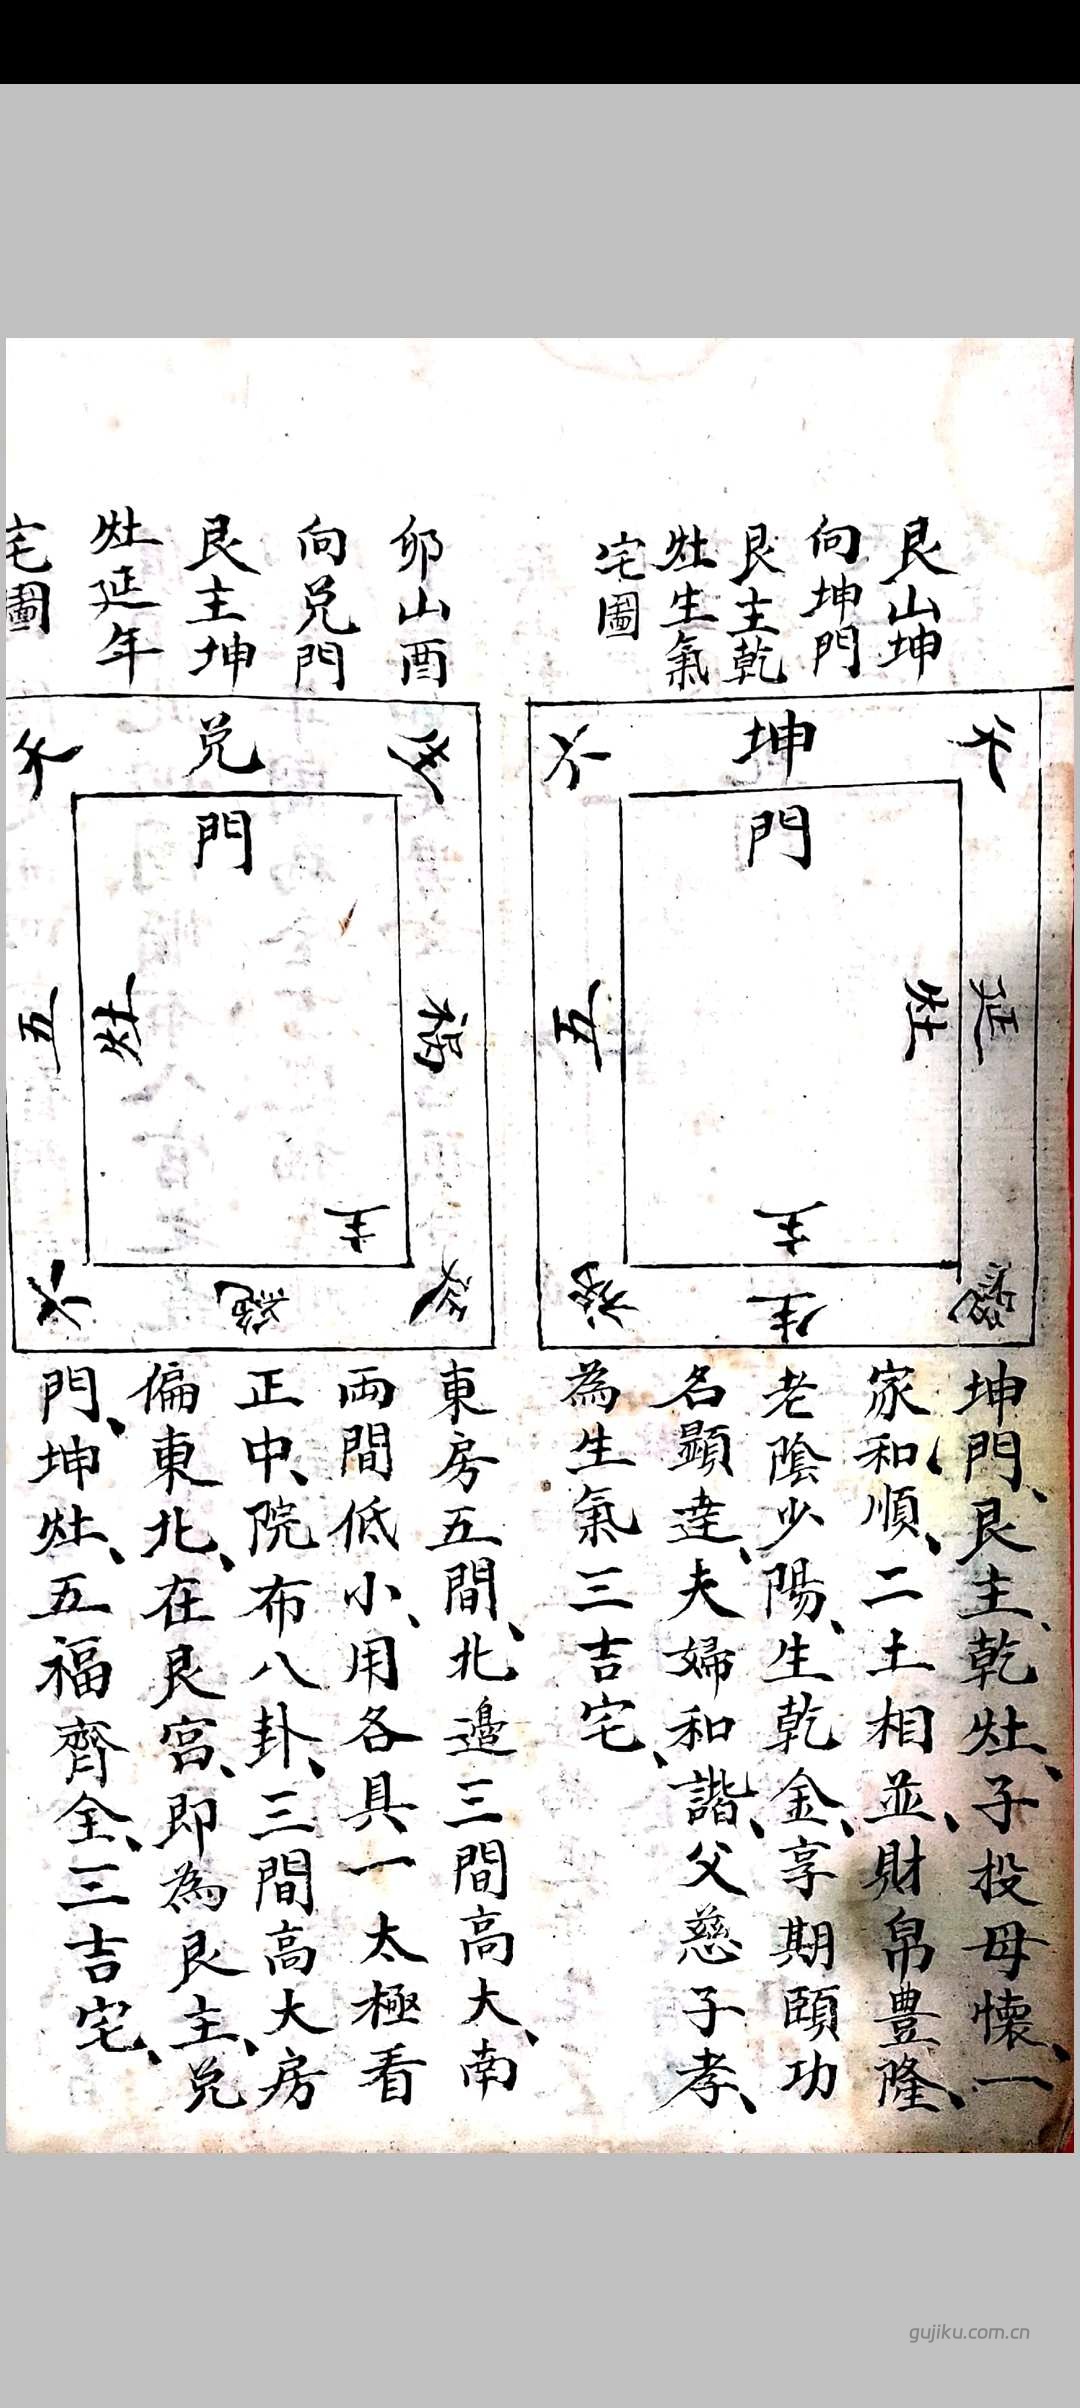 艮山坤
向坤門
艮主乾
灶生氣
宅圖
坤
門
六
天
五
延
灶
主
生
禍
絕
坤門、艮主、乾灶、子投母懷、一
家和順、二土相並、財帛豊隆、
老陰少陽、生乾金、享期頤功
名顯達、夫婦和諧、父慈子孝、
為生氣三吉宅、
卯山酉
向兌門
艮主坤
灶延年
宅圖
兌
門
天
生
五
灶
禍
主
六
絕
延
東房五間、北邉三間高大、南
兩間低小、用各具一太極看
正中、院布八卦、三間高大房
偏東北、在艮宮、即為艮主、兌
門、坤灶、五福齊全、三吉宅、
gujiku.com.cn